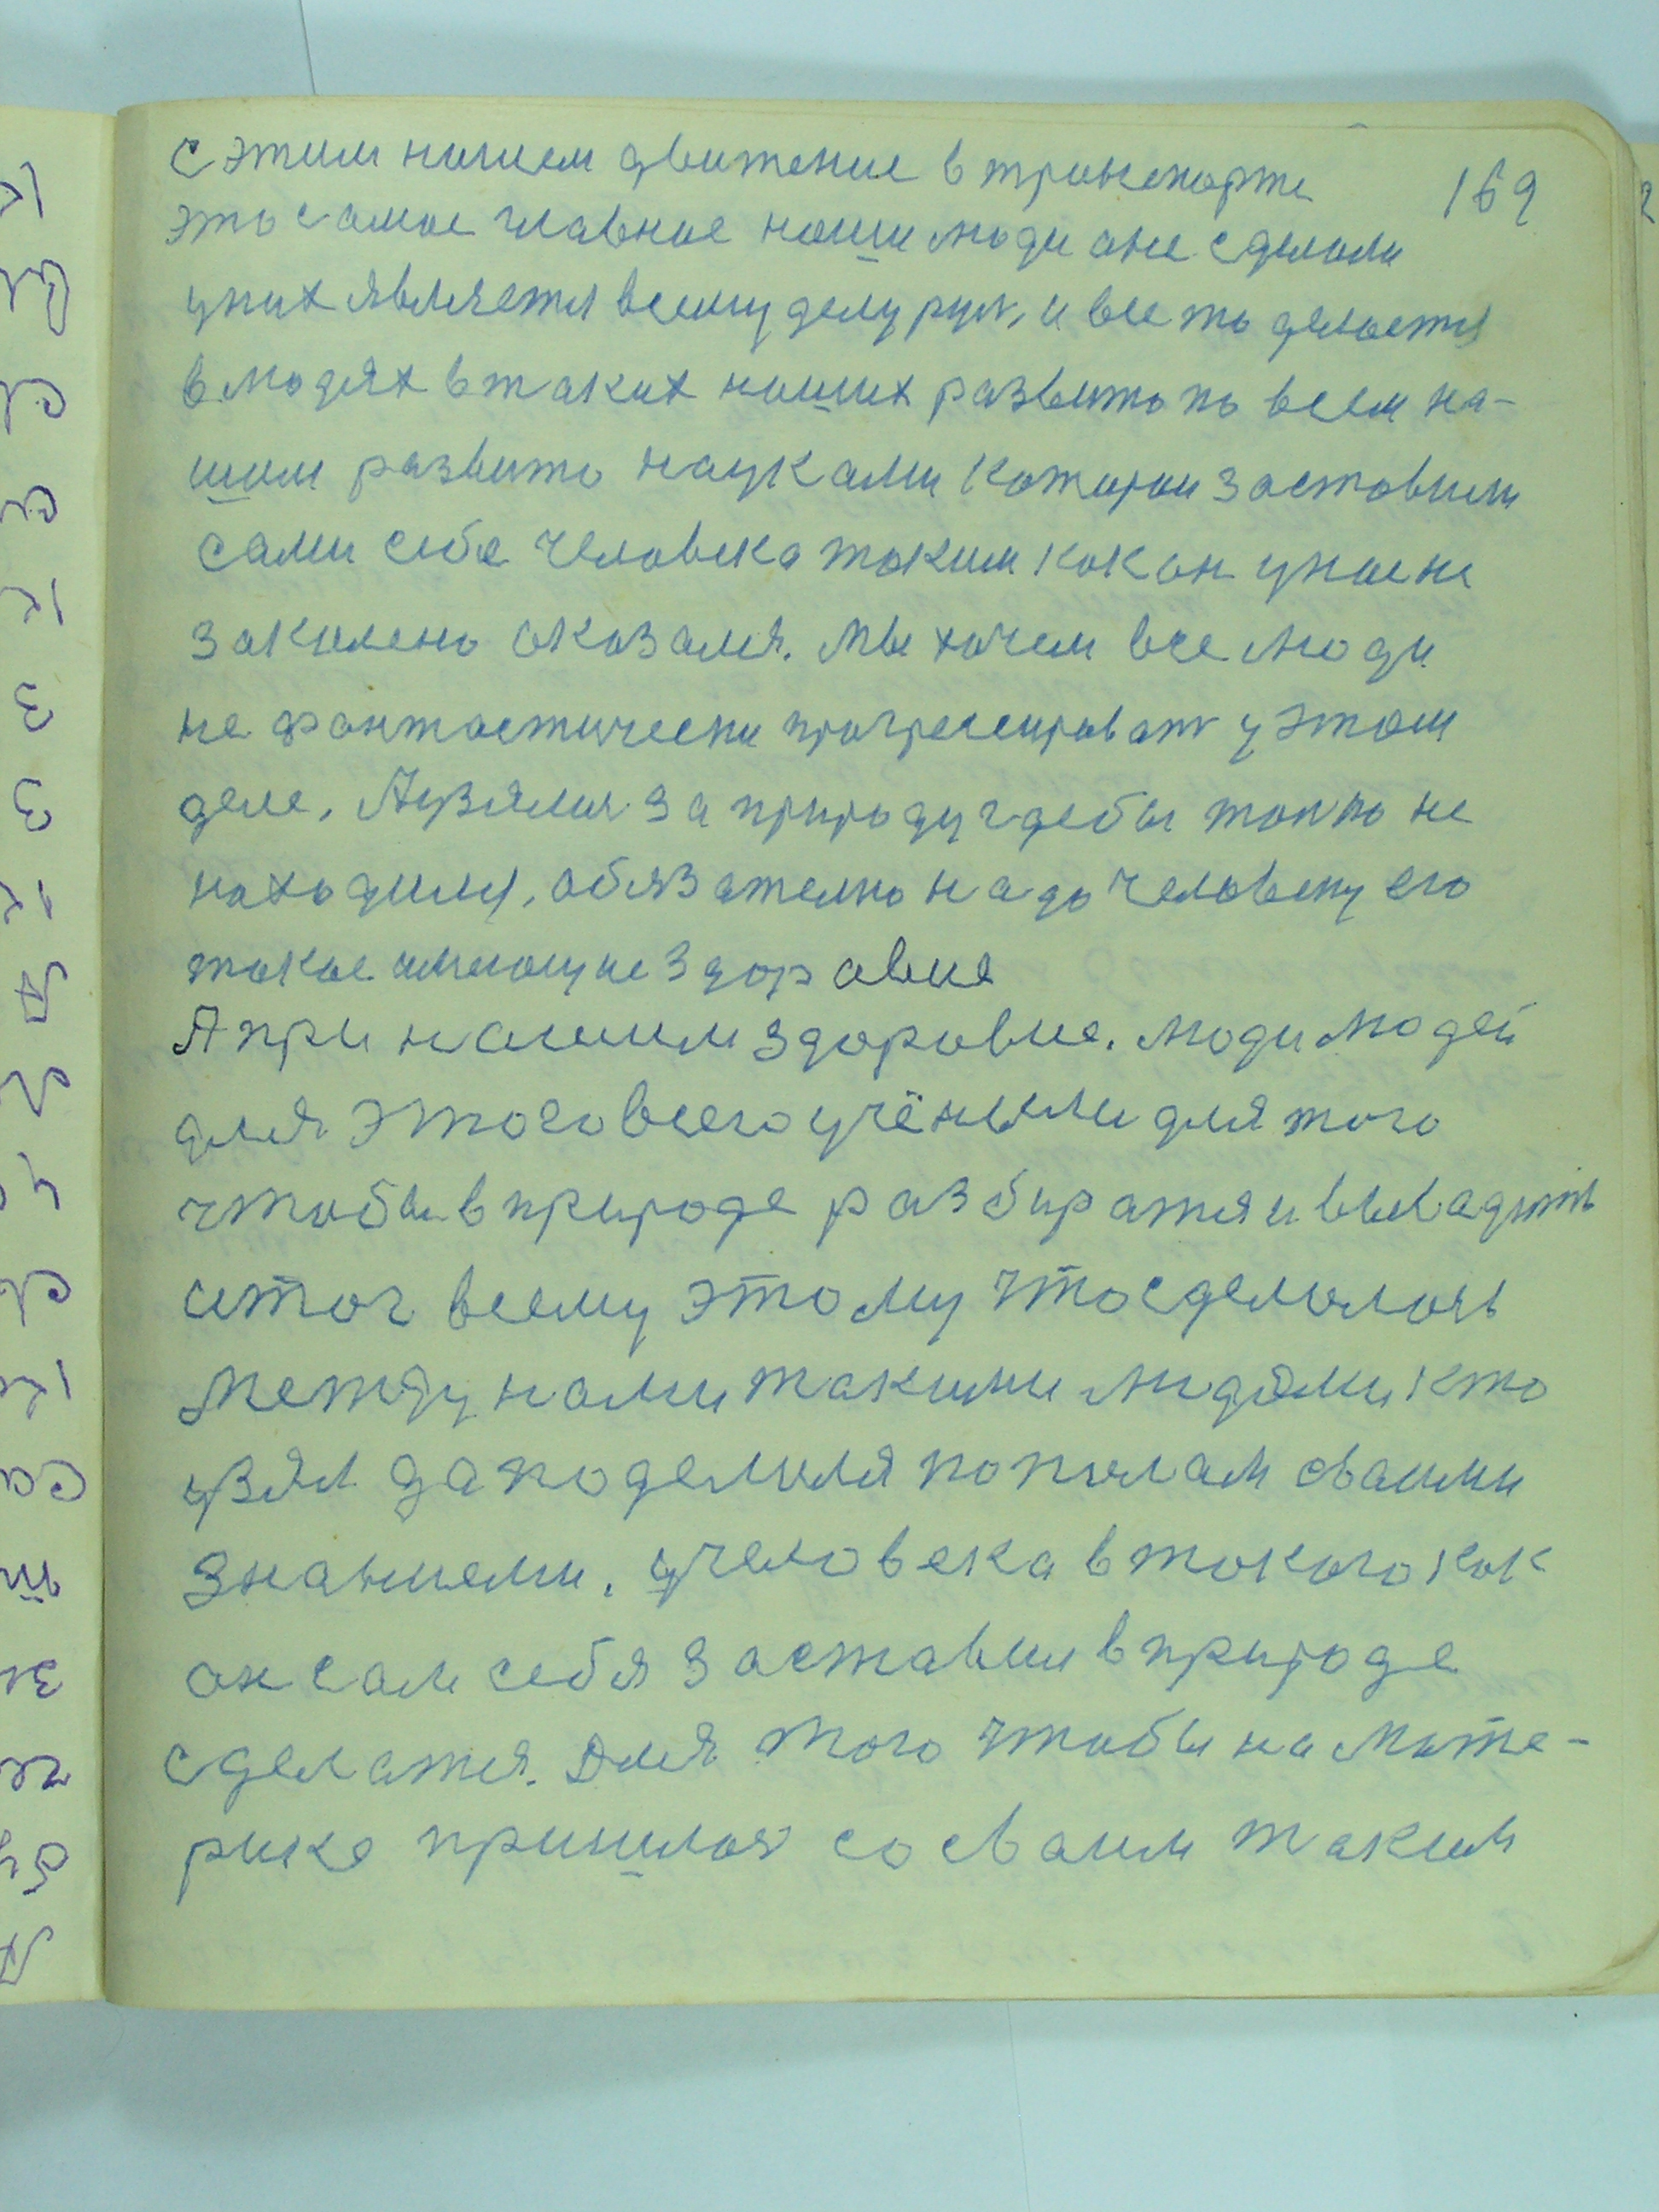 с этим ничем движение в транспорте
169
это самое главное наши люди оне сделали
у них является всему делу рул, и все то делается
в людях в таких наших развито по всем на-
шим развито науками которои заставили
сами себе человека таким как он у нас не
законено оказался. Мы хочем все люди
не фантастически прогресироват у этом
деле, А узялися за природу где бы толко не
находился, обязателно надо человеку его
такое имеющие здоравие
А при нашим здоровие. люди людей
для этого всего учёными для того
чтобы в природе разбиратя и вывадить
итог всему этому что сделалось
между нами такими людями кто
узял да поделился пополам сваими
знаниеми. учеловека в такого как
он сам себя заставил в природе
сделатся. Для того чтобы на мате-
рике пришлося со сваим таким